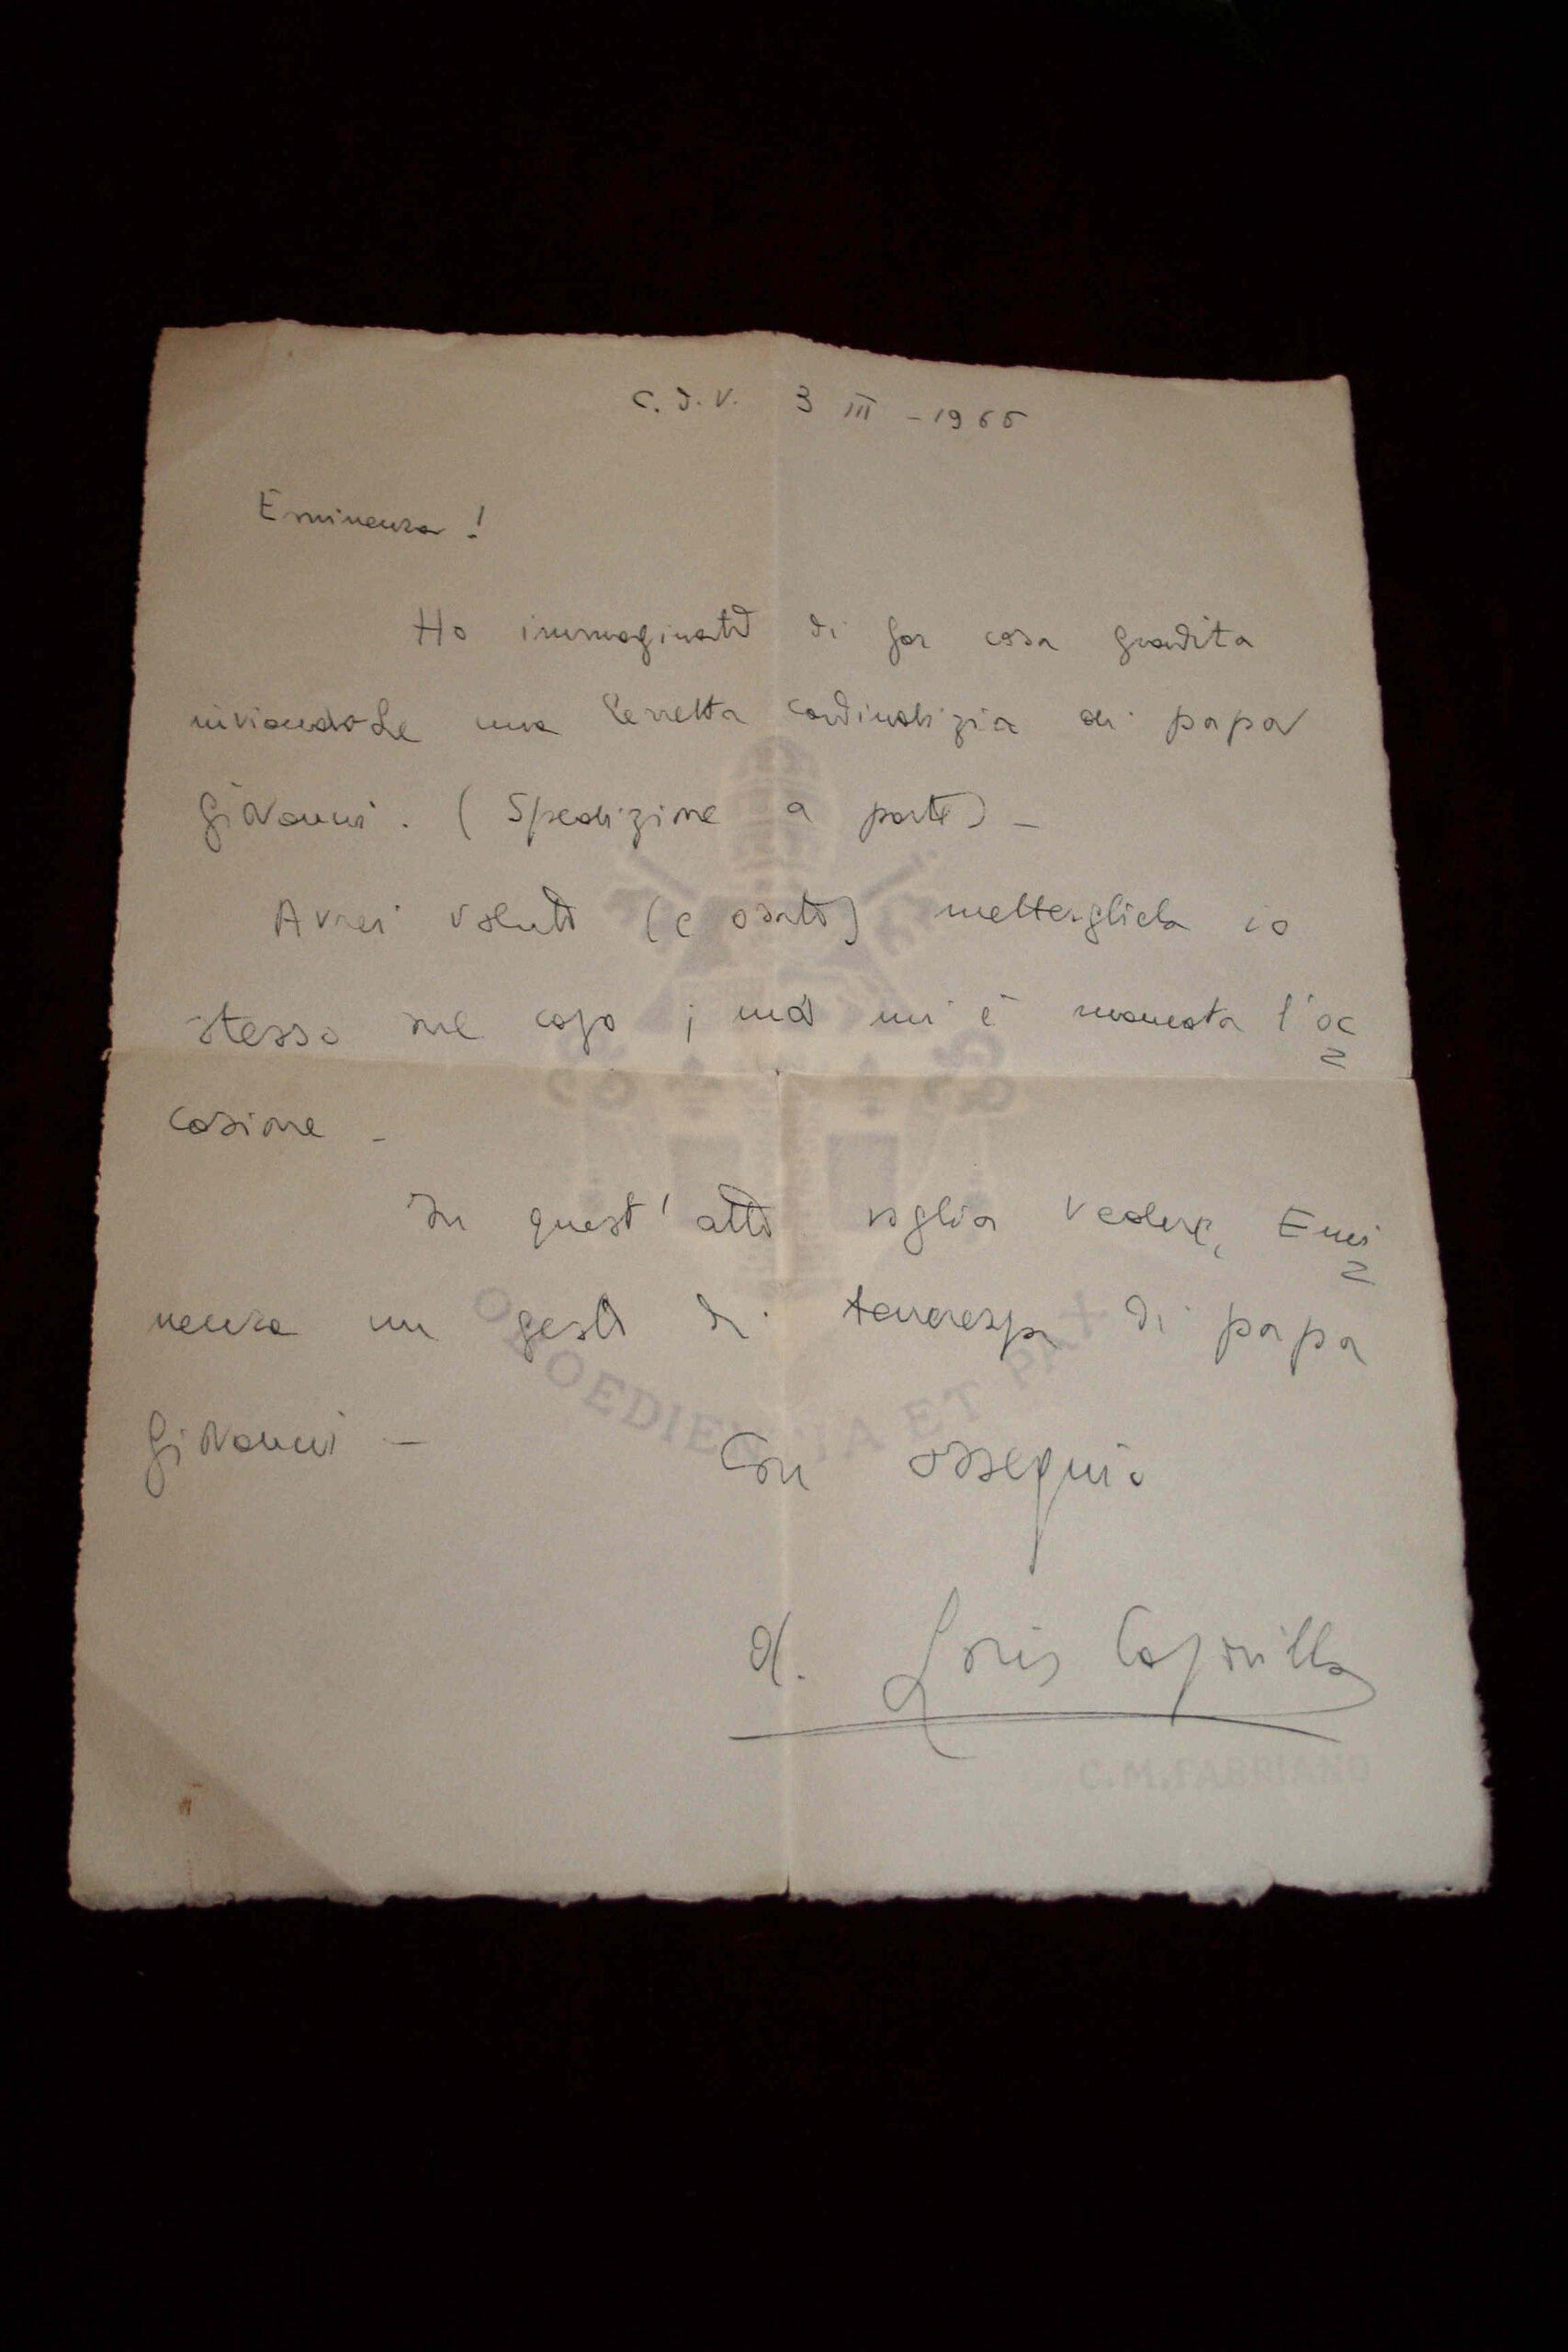 C. d. V. 3 III - 1965
Eminenza!
Ho immaginato di far cosa gradita
inviandoLe una berretta cardinalizia di papa
Giovanni. (Spedizione a parte) -
Avrei voluto (e osato) mettergliela io
stesso sul capo; ma mi è mancata l'oc
casione -
In quest'atto voglia vedere, Emi
nenza un gesto di tenerezza di papa
Giovanni -
Con ossequio
d. Loris Capovilla
OBOEDIENTIA ET PAX
C.M.FABRIANO